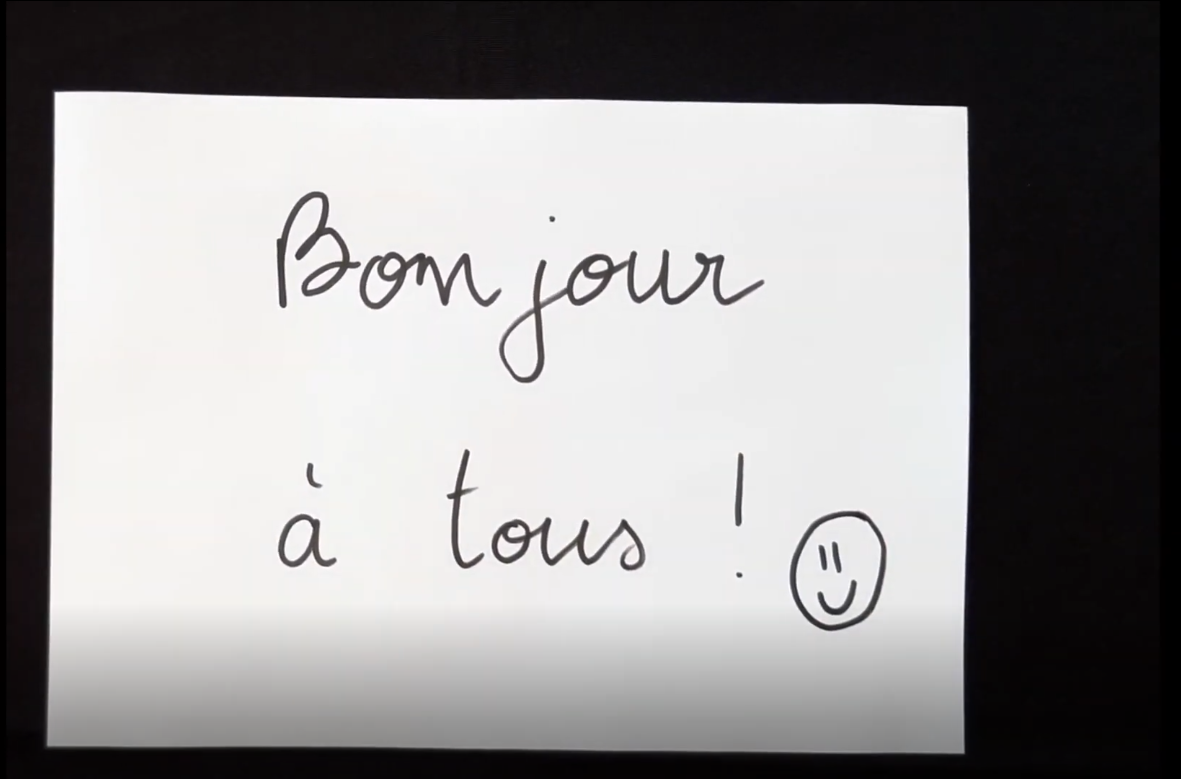 Bonjour
à tous !